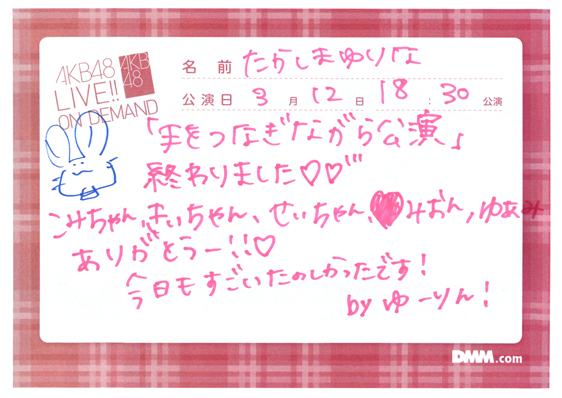 AKB48
LIVE!!
ON DEMAND
AKB
48
名前 たかしまゆりな
公演日 3月12日 18:30公演
「手をつなぎながら公演」
終わりました♡♡
こみちゃん、まいちゃん、せいちゃん、♥みおん、ゆあみ
ありがとうー!!♡
今日もすごいたのしかったです!
by ゆーりん!
DMM.com